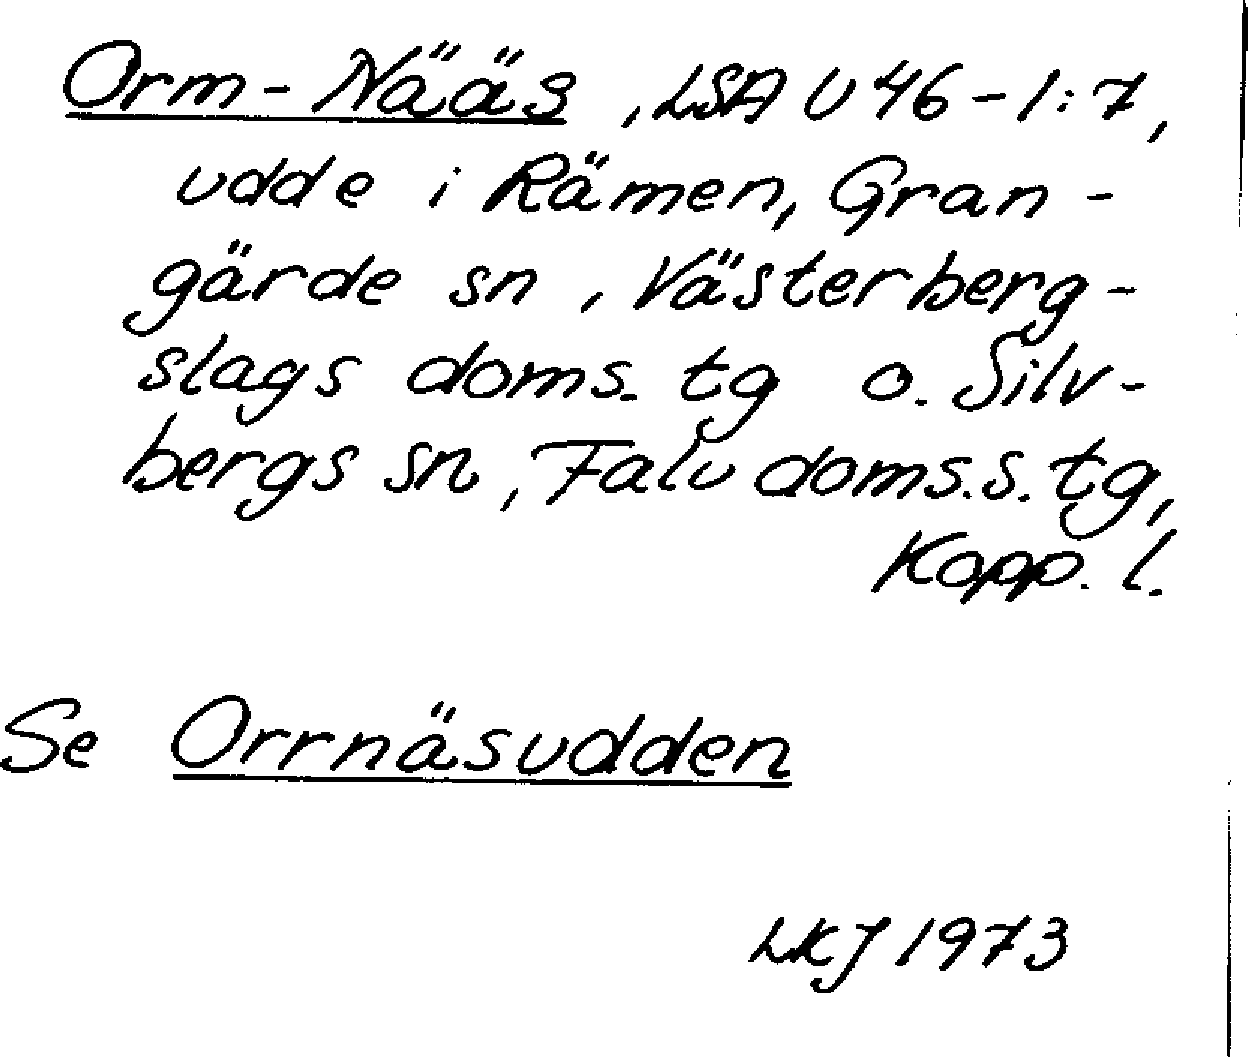 Orm-Nääs, LSA U46-1:7,
udde i Rämen, Gran-
gärde sn, Västerberg-
slags doms. tg o. Silv-
bergs sn, Falu doms.s. tg,
Kopp. l.
Se Orrnäsudden
LKJ 1973